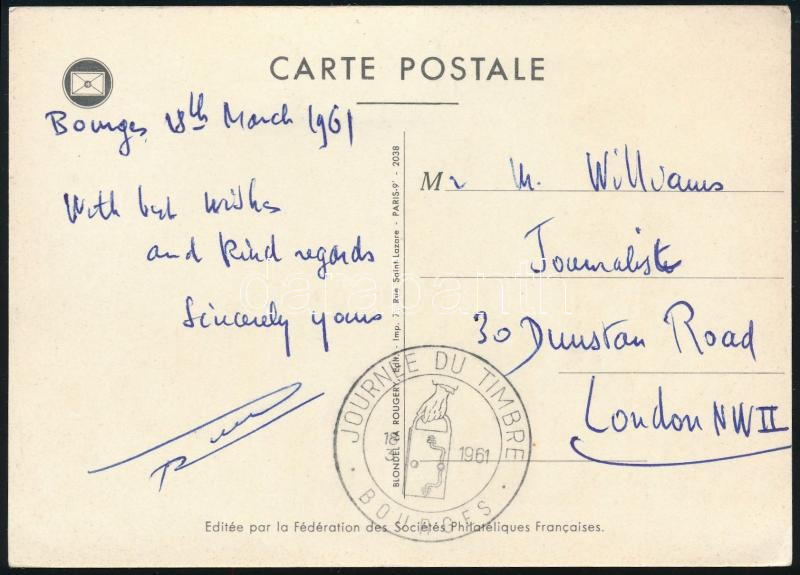 CARTE POSTALE
Bourges, 18th March 1961
With best wishes
and kind regards
Sincerely yours
Mr M. Williams
Journaliste
30 Dunstan Road
London NW II
BLONDEL LA ROUGERY, Edit. - Imp. 7, Rue Saint Lazare - PARIS-9e - 2038
JOURNÉE DU TIMBRE
18
3
1961
BOURGES
Editée par la Fédération des Sociétés Philatéliques Françaises.
darabanth